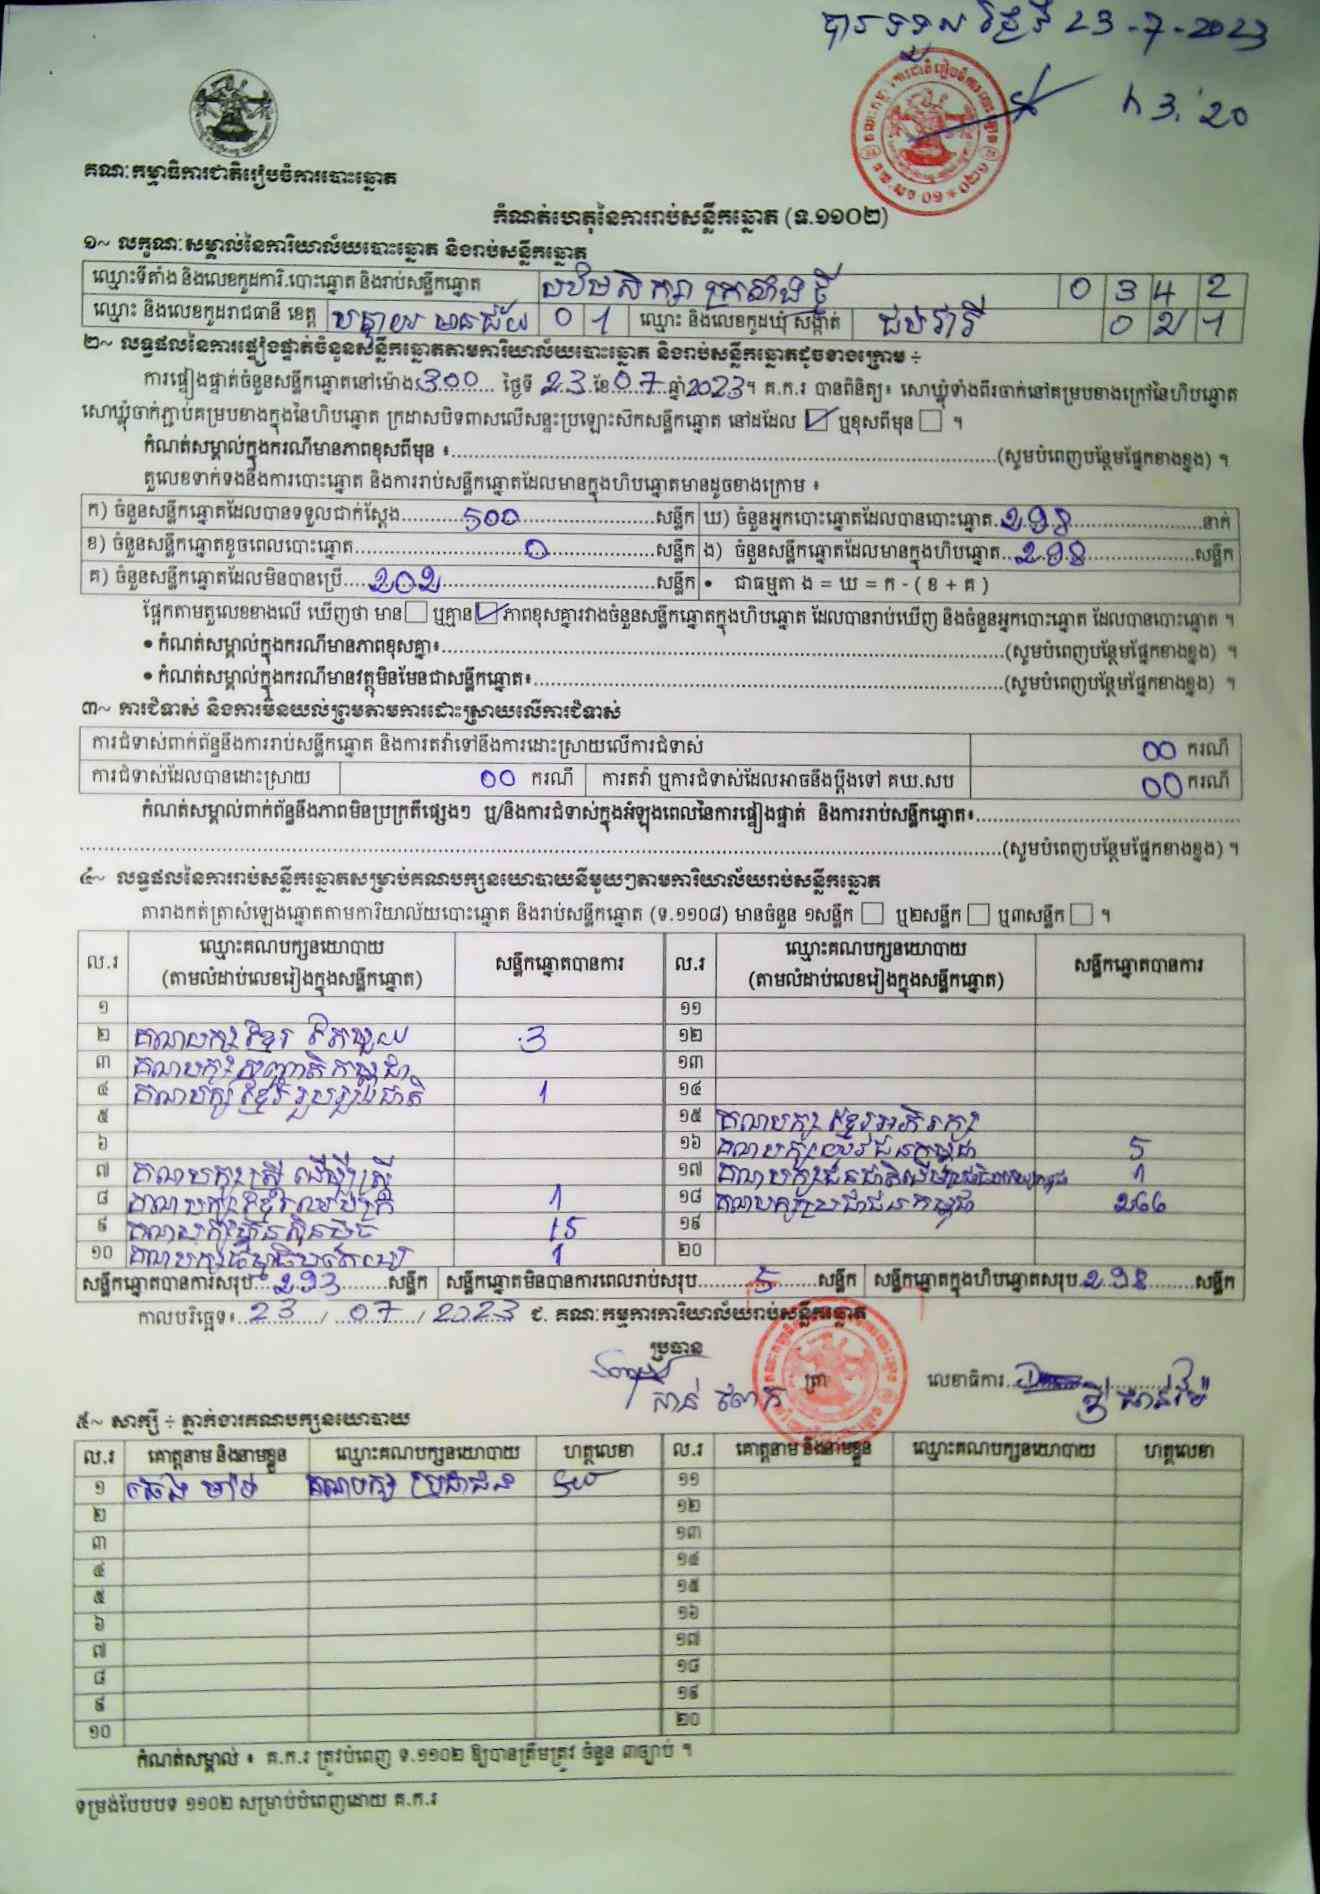 បានទទួល ថ្ងៃទី 23-7-2023
ម 3:20
គណៈកម្មាធិការជាតិរៀបចំការបោះឆ្នោត
កំណត់ហេតុនៃការរាប់សន្លឹកឆ្នោត (ទ.១១០២)
១~ លក្ខណៈសម្គាល់នៃការិយាល័យបោះឆ្នោត និងរាប់សន្លឹកឆ្នោត
ឈ្មោះទីតាំង និងលេខកូដការិ.បោះឆ្នោត និងរាប់សន្លឹកឆ្នោត បឋមសិក្សា 0 3 4 2
ឈ្មោះ និងលេខកូដរាជធានី ខេត្ត បន្ទាយមានជ័យ 0 1 ឈ្មោះ និងលេខកូដឃុំ សង្កាត់ 0 2 1
២~ លទ្ធផលនៃការផ្ទៀងផ្ទាត់ចំនួនសន្លឹកឆ្នោតតាមការិយាល័យបោះឆ្នោត និងរាប់សន្លឹកឆ្នោតដូចខាងក្រោម ÷
ការផ្ទៀងផ្ទាត់ចំនួនសន្លឹកឆ្នោតនៅម៉ោង 3:00 ថ្ងៃទី 23 ខែ 07 ឆ្នាំ 2023។ គ.ក.រ បានពិនិត្យ៖ សោឃ្លុំទាំងពីរចាក់នៅគម្របខាងក្រៅនៃហិបឆ្នោត
សោឃ្លុំចាក់ភ្ជាប់គម្របខាងក្នុងនៃហិបឆ្នោត ក្រដាសបិទពាសលើសន្ទះប្រឡោះសឹកសន្លឹកឆ្នោត នៅដដែល ☑ ឬខុសពីមុន ☐ ។
កំណត់សម្គាល់ក្នុងករណីមានភាពខុសពីមុន ៖ (សូមបំពេញបន្ថែមផ្នែកខាងខ្នង) ។
តួលេខទាក់ទងនឹងការបោះឆ្នោត និងការរាប់សន្លឹកឆ្នោតដែលមានក្នុងហិបឆ្នោតមានដូចខាងក្រោម ៖
ក) ចំនួនសន្លឹកឆ្នោតដែលបានទទួលជាក់ស្តែង 500 សន្លឹក ឃ) ចំនួនអ្នកបោះឆ្នោតដែលបានបោះឆ្នោត 298 នាក់
ខ) ចំនួនសន្លឹកឆ្នោតខូចពេលបោះឆ្នោត 0 សន្លឹក ង) ចំនួនសន្លឹកឆ្នោតដែលមានក្នុងហិបឆ្នោត 298 សន្លឹក
គ) ចំនួនសន្លឹកឆ្នោតដែលមិនបានប្រើ 202 សន្លឹក • ជាធម្មតា ង = ឃ = ក - ( ខ + គ )
ផ្អែកតាមតួលេខខាងលើ ឃើញថា មាន ☐ ឬគ្មាន ☑ ភាពខុសគ្នារវាងចំនួនសន្លឹកឆ្នោតក្នុងហិបឆ្នោត ដែលបានរាប់ឃើញ និងចំនួនអ្នកបោះឆ្នោត ដែលបានបោះឆ្នោត ។
• កំណត់សម្គាល់ក្នុងករណីមានភាពខុសគ្នា៖ (សូមបំពេញបន្ថែមផ្នែកខាងខ្នង) ។
• កំណត់សម្គាល់ក្នុងករណីមានវត្ថុមិនមែនជាសន្លឹកឆ្នោត៖ (សូមបំពេញបន្ថែមផ្នែកខាងខ្នង) ។
៣~ ការជំទាស់ និងការមិនយល់ព្រមតាមការដោះស្រាយលើការជំទាស់
ការជំទាស់ពាក់ព័ន្ធនឹងការរាប់សន្លឹកឆ្នោត និងការតវ៉ាទៅនឹងការដោះស្រាយលើការជំទាស់ 00 ករណី
ការជំទាស់ដែលបានដោះស្រាយ 00 ករណី ការតវ៉ា ឬការជំទាស់ដែលអាចនឹងប្តឹងទៅ គឃ.សប 00 ករណី
កំណត់សម្គាល់ពាក់ព័ន្ធនឹងភាពមិនប្រក្រតីផ្សេងៗ ឬ/និងការជំទាស់ក្នុងអំឡុងពេលនៃការផ្ទៀងផ្ទាត់ និងការរាប់សន្លឹកឆ្នោត៖
(សូមបំពេញបន្ថែមផ្នែកខាងខ្នង) ។
៤~ លទ្ធផលនៃការរាប់សន្លឹកឆ្នោតសម្រាប់គណបក្សនយោបាយនីមួយៗតាមការិយាល័យរាប់សន្លឹកឆ្នោត
តារាងកត់ត្រាសំឡេងឆ្នោតតាមការិយាល័យបោះឆ្នោត និងរាប់សន្លឹកឆ្នោត (ទ.១១០៨) មានចំនួន ១សន្លឹក ☐ ឬ២សន្លឹក ☐ ឬ៣សន្លឹក ☐ ។
ល.រ ឈ្មោះគណបក្សនយោបាយ (តាមលំដាប់លេខរៀងក្នុងសន្លឹកឆ្នោត) សន្លឹកឆ្នោតបានការ ល.រ ឈ្មោះគណបក្សនយោបាយ (តាមលំដាប់លេខរៀងក្នុងសន្លឹកឆ្នោត) សន្លឹកឆ្នោតបានការ
១ ១១
២ គណបក្សខ្មែរតែមួយ 3 ១២
៣ គណបក្សសញ្ជាតិកម្ពុជា ១៣
៤ គណបក្សខ្មែររួបរួមជាតិ 1 ១៤
៥ ១៥ គណបក្សខ្មែរអភិរក្ស
៦ ១៦ គណបក្ស 5
៧ គណបក្សស្ត្រីដើម្បីស្ត្រី ១៧ 1
៨ គណបក្សខ្មែរ 1 ១៨ គណបក្សប្រជាជនកម្ពុជា 266
៩ គណបក្សហ្វ៊ុនស៊ិនប៉ិច 15 ១៩
១០ គណបក្ស 1 ២០
សន្លឹកឆ្នោតបានការសរុប 293 សន្លឹក សន្លឹកឆ្នោតមិនបានការពេលរាប់សរុប 5 សន្លឹក សន្លឹកឆ្នោតក្នុងហិបឆ្នោតសរុប 298 សន្លឹក
កាលបរិច្ឆេទ៖ 23 / 07 / 2023 ជ. គណៈកម្មការការិយាល័យរាប់សន្លឹកឆ្នោត
ប្រធាន ត្រា លេខាធិការ
៥~ សាក្សី ÷ ភ្នាក់ងារគណបក្សនយោបាយ
ល.រ គោត្តនាម និងនាមខ្លួន ឈ្មោះគណបក្សនយោបាយ ហត្ថលេខា ល.រ គោត្តនាម និងនាមខ្លួន ឈ្មោះគណបក្សនយោបាយ ហត្ថលេខា
១ គណបក្ស ប្រជាជន ១១
២ ១២
៣ ១៣
៤ ១៤
៥ ១៥
៦ ១៦
៧ ១៧
៨ ១៨
៩ ១៩
១០ ២០
កំណត់សម្គាល់ ៖ គ.ក.រ ត្រូវបំពេញ ទ.១១០២ ឱ្យបានត្រឹមត្រូវ ចំនួន ៣ច្បាប់ ។
ទម្រង់បែបបទ ១១០២ សម្រាប់បំពេញដោយ គ.ក.រ